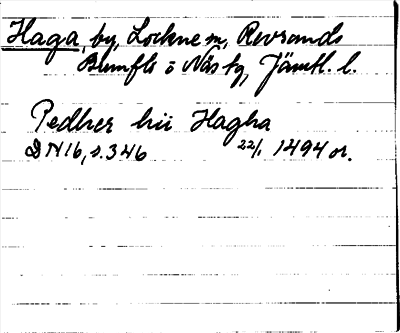 Haga, by, Lockne sn, Revsunds
Brunflo o Näs tg, Jämtl. l.
Pedher hii Hagha
DN 16, s. 346 22/1 1494 or.